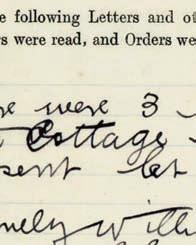 e following Letters and ot
rs were read, and Orders we
re were 3
Cottage
sent let
nely Willi